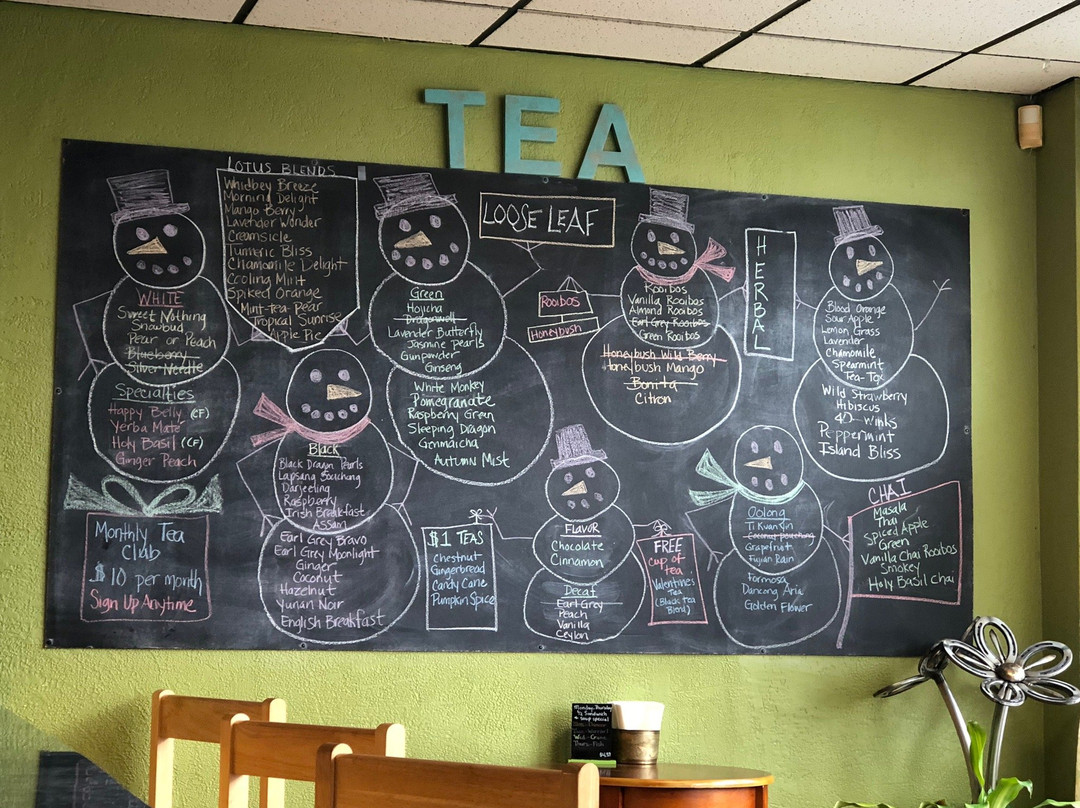 TEA
LOTUS BLENDS
Whidbey Breeze
Morning Delight
Mango Berry
Lavender Wonder
Creamsicle
Turmeric Bliss
Chamomile Delight
Cooling Mint
Spiked Orange
Mint-tea-Pear
Tropical Sunrise
Apple Pie
LOOSE LEAF
WHITE
Sweet Nothing
Snowbud
Pear or Peach
Blueberry
Silver Needle
Specialties
Happy Belly (CF)
Yerba Mate
Holy Basil (CF)
Ginger Peach
Monthly Tea
Club
$10 per month
Sign Up Anytime
Black
Black Dragon Pearls
Lapsang Souchong
Darjeeling
Raspberry
Irish Breakfast
Assam
Earl Grey Bravo
Earl Grey Moonlight
Ginger
Coconut
Hazelnut
Yunan Noir
English Breakfast
Green
Hojicha
Dragonwell
Lavender Butterfly
Jasmine Pearls
Gunpowder
Ginseng
White Monkey
Pomegranate
Raspberry Green
Sleeping Dragon
Genmaicha
Autumn Mist
$1 TEAS
Chestnut
Gingerbread
Candy Cane
Pumpkin Spice
Rooibos
Honeybush
Rooibos
Vanilla Rooibos
Almond Rooibos
Earl Grey Rooibos
Green Rooibos
Honeybush Wild Berry
Honeybush Mango
Bonita
Citron
FLAVOR
Chocolate
Cinnamon
Decaf
Earl Grey
Peach
Vanilla
Ceylon
FREE
cup of
tea
Valentines
Tea
(Black Tea
Blend)
HERBAL
Blood Orange
Sour Apple
Lemon Grass
Lavender
Chamomile
Spearmint
Tea-Tox
Wild Strawberry
Hibiscus
40-Winks
Peppermint
Island Bliss
Oolong
Ti Kuan Yin
Coconut Pouchong
Grapefruit
Fujian Rain
Formosa
Dancong Aria
Golden Flower
CHAI
Masala
Thai
Spiced Apple
Green
Vanilla Chai Rooibos
Smokey
Holy Basil Chai
Monday-Thursday
1/2 Sandwich
+ soup special